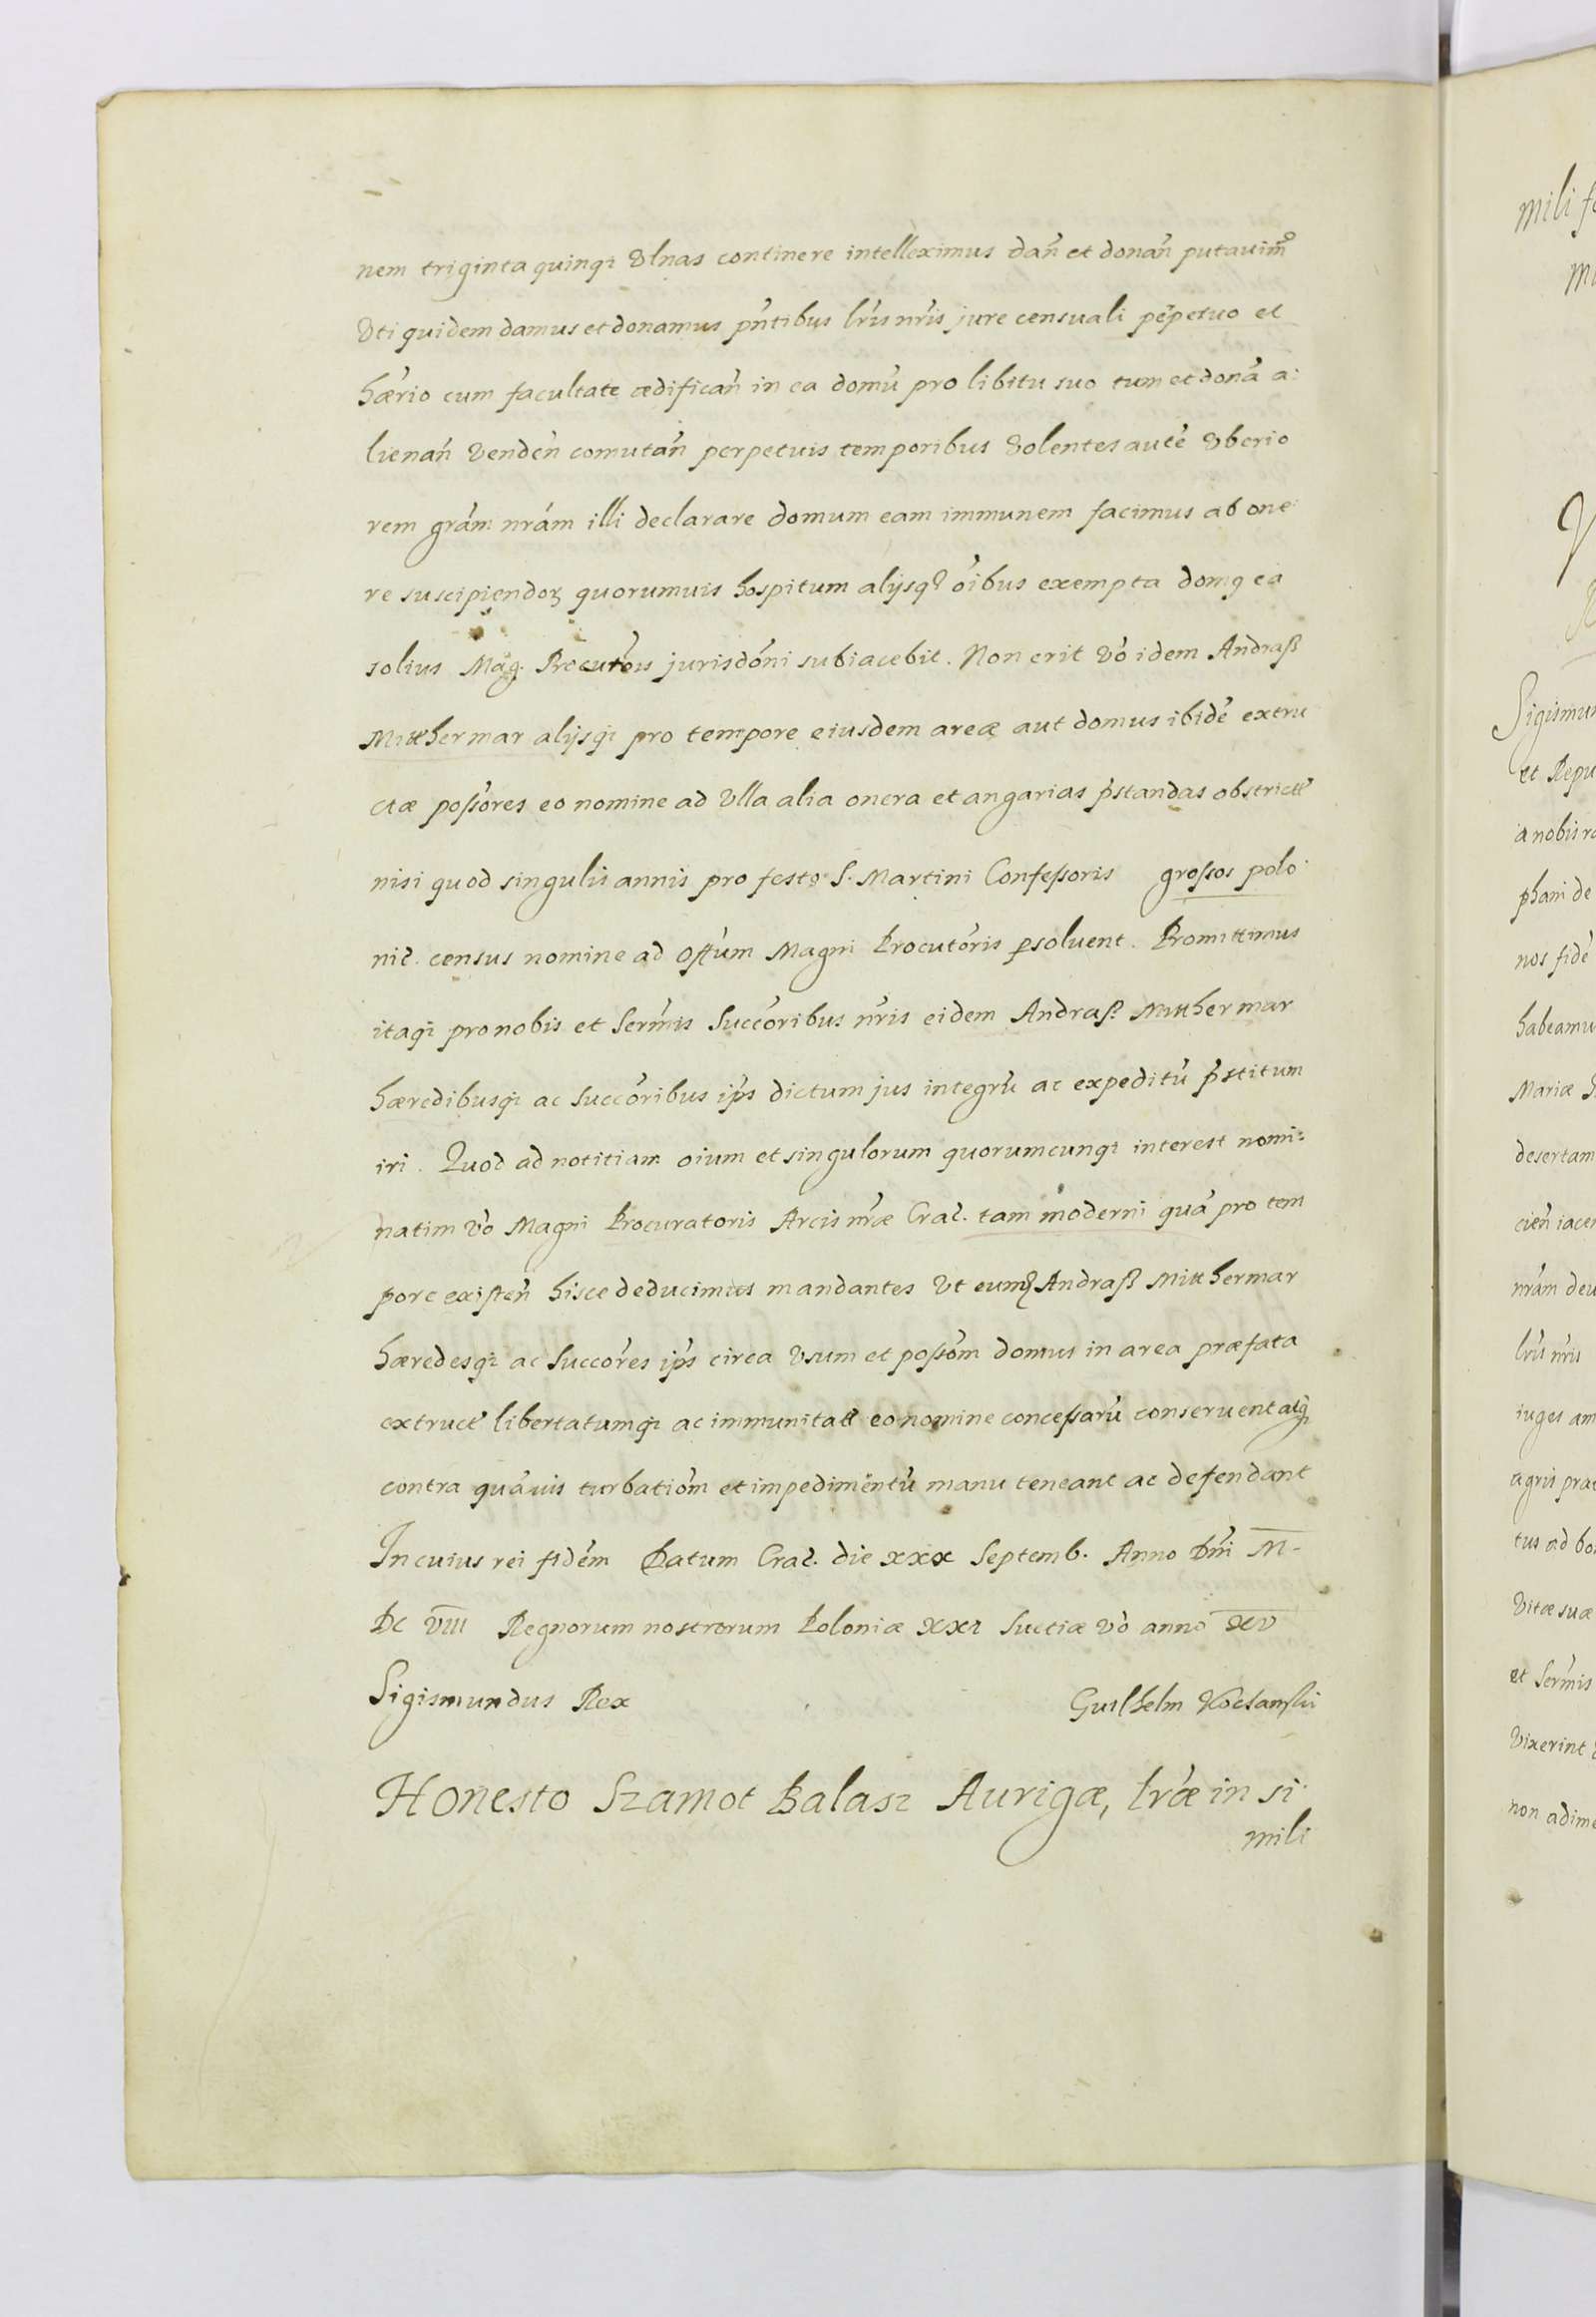 nem triginta quinq₃ Vlnas continere intelleximus dan̄ et donan̄ putauim⁹
Vti quidem damus et donamus pn̄tibus lrīs nrīs jure censuali pēpetuo et
hærio cum facultate ædifican̄ in ea domū pro libitu suo tum et donā a:
lienan̄ venden̄ comutan̄ perpetuis temporibus Volentes autē Vberio
rem grām nrām illi declarare domum eam immunem facimus ab one
re suscipiendoꝝ quorumuis hospitum alijsq₃ oībus exempta domq ea
solius Mag. Procutōris jurisdōni subiacebit. Non erit vō idem Andraß
Mitthermar alijsq₃ pro tempore eiusdem areæ aut domus ibidē extru
ctæ poßōres eo nomine ad Vlla alia onera et angarias p̄standas obstricti
nisi quod singulis annis pro festo S. Martini Confeßoris großos polo
nic. census nomine ad Offūm Magni Procutōris p̱soluent. Promittimus
itaq₃ pro nobis et Serm̄is Succōribus nrīs eidem Andraß Mitthermar
hæredibusq₃ ac Succōribus ip̄s dictum jus integrū ac expeditū p̄stitum
iri. Quod ad notitiam oium et singulorum quorumcunq₃ interest nomi=
natim vō Magni Procuratoris Arcis nræ Crac. tam moderni quā pro tem
pore existen̄ hisce deducimus mandantes Vt eumq Andraß Mitthermar
hæredesq₃ ac Succōres ip̄s circa Vsum et poßōm domus in area præfata
extructæ libertatumq₃ ac immunitatū eo nomine conceßarū conseruent atq₃
contra quāuis turbatiōm et impedimentū manu teneant ac defendant
In cuius rei fidēm Datum Crac. die xxx Septemb. Anno Dn̄i M-
Dc VIII Regnorum nostrorum Poloniæ XXI Suetiæ vō anno XV
Sigismundus Rex Guilhelm Kochansky
Honesto Szamot Balasz Aurigæ, lrǣ in si
mili
mili
Sigismun
et Repu
a nobis
phani de
nos fidē
habeamu
Mariæ
desertam
cien̄ iacen
nrām deu
lrīs nrīs
iuges am
agris præ
tus ad bo
Vitæ suæ
et Serm̄is
Vixerint
non adime